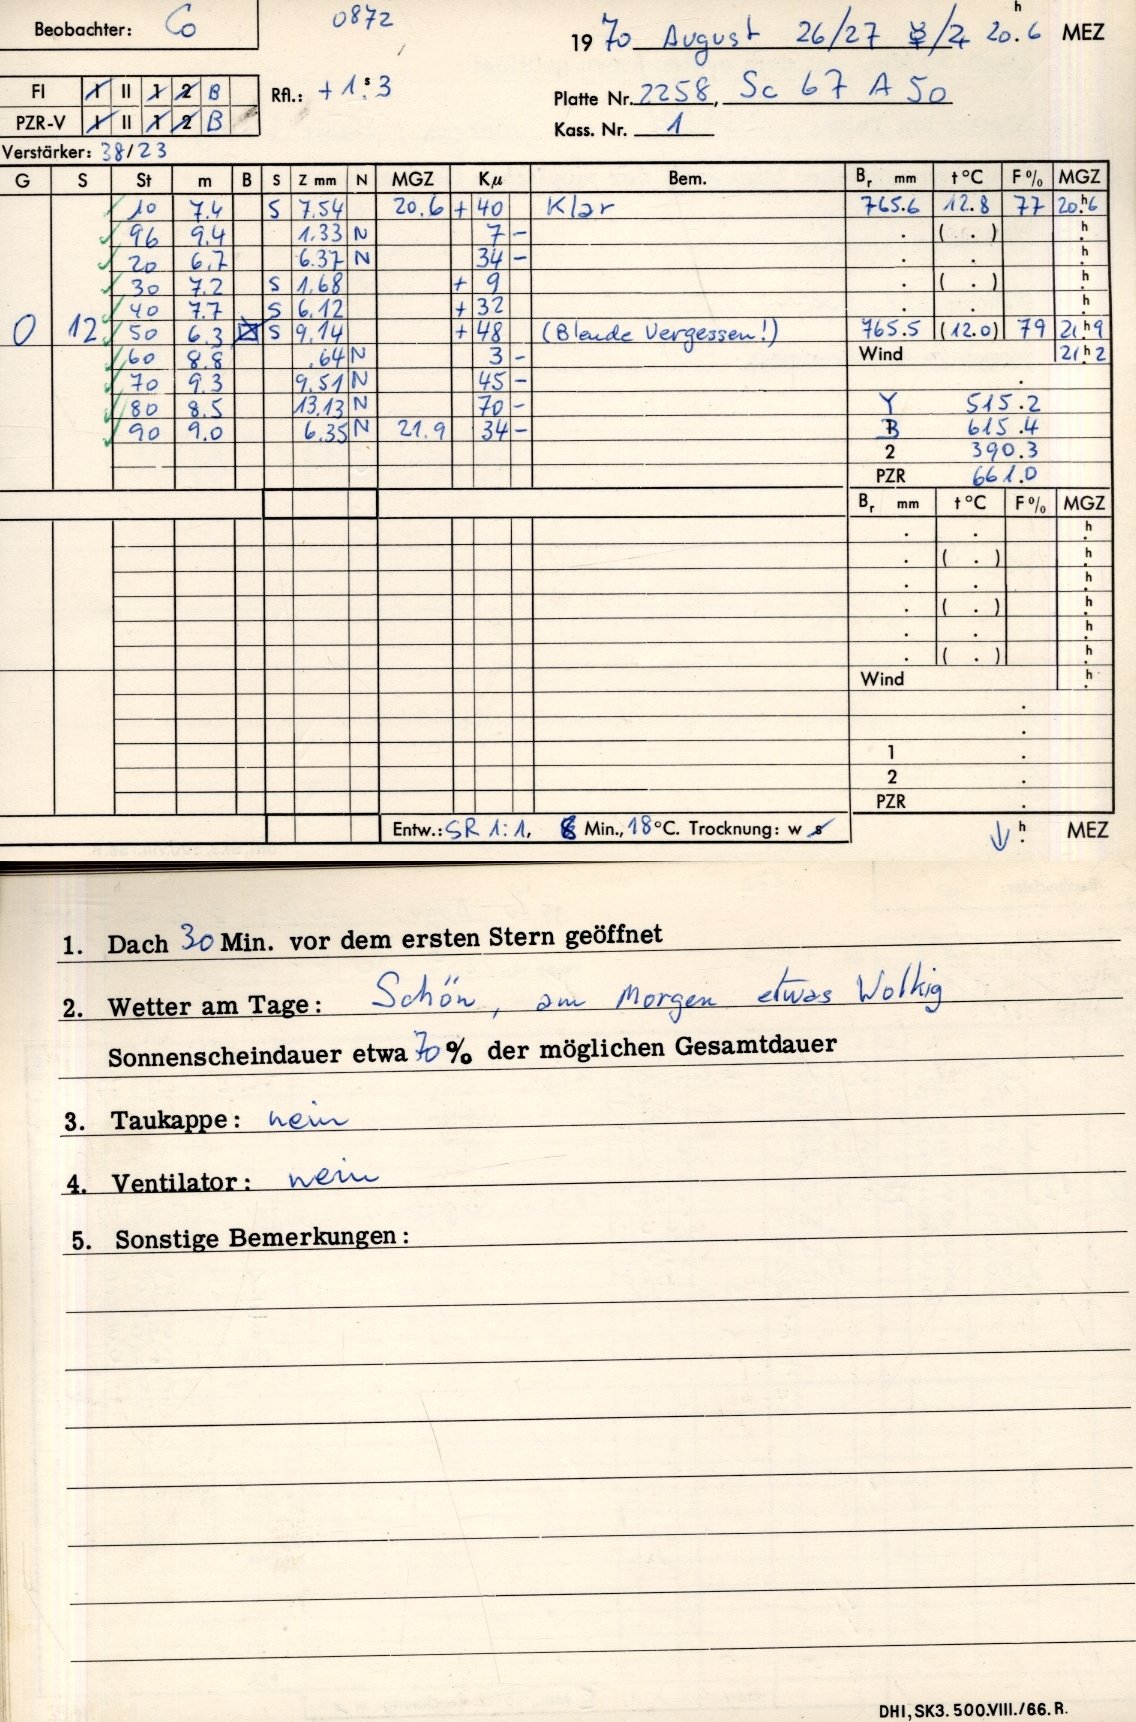 Beobachter: Co
0872
1970 August 26/27 ☿/♃ 20.6 h MEZ
FI 1 II 1 2 B
Rfl.: +1.s3
Platte Nr. 2258, Sc 67 A 50
PZR-V 1 II 1 2 B
Kass. Nr. 1
Verstärker: 38/23
G S St m B S Z mm N MGZ Kμ Bem. Br mm t °C F % MGZ
10 7.4 S 7.54 20.6 + 40 Klar 765.6 12.8 77 20.h6
96 9.4 1.33 N 7 - . ( . ) h.
20 6.7 6.37 N 34 - . . h.
30 7.2 S 1.68 + 9 . ( . ) h.
40 7.7 S 6.12 + 32 . . h.
0 12 50 6.3 S 9.14 + 48 (Blende vergessen!) 765.5 (12.0) 79 21.h9
60 8.8 .64 N 3 - Wind 21.h2
70 9.3 9.51 N 45 - .
80 8.5 13.13 N 70 - Y 515.2
90 9.0 6.35 N 21.9 34 - B 615.4
2 390.3
PZR 661.0
Br mm t °C F % MGZ
. . h.
. ( . ) h.
. . h.
. ( . ) h.
. . h.
. ( . ) h.
Wind h.
.
.
1 .
2 .
PZR .
Entw.: SR 1:1, 6 Min., 18 °C. Trocknung: w s
↓ h. MEZ
1. Dach 30 Min. vor dem ersten Stern geöffnet
2. Wetter am Tage: Schön, am Morgen etwas Wolkig
Sonnenscheindauer etwa 70 % der möglichen Gesamtdauer
3. Taukappe: nein
4. Ventilator: nein
5. Sonstige Bemerkungen:
DHI, SK3. 500.VIII./66. R.